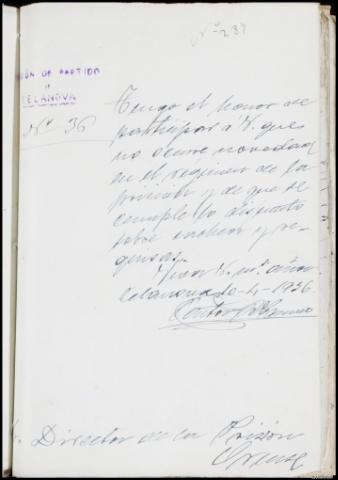 Nº 237
PRISIÓN DE PARTIDO
CELANOVA
Nº 36
Tengo el honor de
participar á V. que
no ocurre novedad
en el régimen de la
prisión y de que se
cumple lo dispuesto
sobre cacheos y re-
quisas.
Viva V. m.ˢ años
Celanova 20-4-1936
Director de la Prisión
Orense